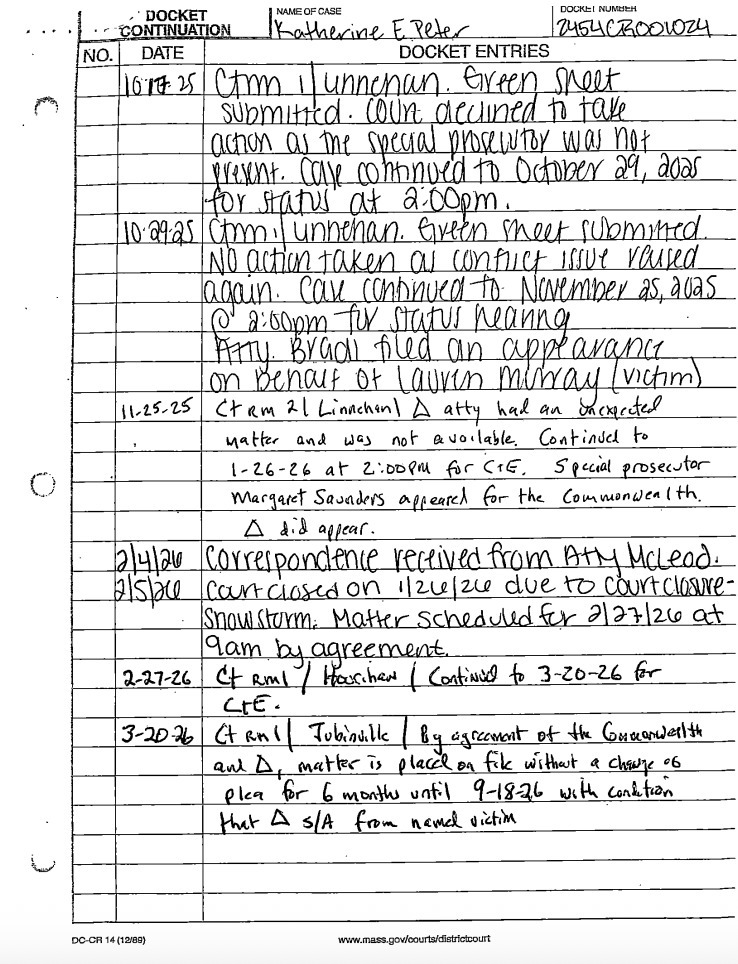 DOCKET
CONTINUATION
NAME OF CASE
Katherine E. Peter
DOCKET NUMBER
2454CR001024
NO. DATE DOCKET ENTRIES
10·17·25 Ctrm 1 | Linnehan. Green sheet
submitted. Court declined to take
action as the special prosecutor was not
present. Case continued to October 29, 2025
for status at 2:00pm.
10·29·25 Ctrm 1 | Linnehan. Green sheet submitted.
No action taken as conflict issue raised
again. Case continued to November 25, 2025
@ 2:00pm for status hearing
Atty. Bradl filed an appearance
on behalf of Lauren Murray (victim)
11-25-25 Ct Rm 2 | Linnehan | Δ atty had an unexpected
matter and was not available. Continued to
1-26-26 at 2:00PM for CtE. Special prosecutor
Margaret Saunders appeared for the Commonwealth.
Δ did appear.
2/4/26 Correspondence received from Atty McLeod.
2/5/26 Court closed on 1/26/26 due to court closure-
snowstorm. Matter scheduled for 2/27/26 at
9am by agreement.
2-27-26 Ct Rm 1 / Hourihan / Continued to 3-20-26 for
CtE.
3-20-26 Ct Rm 1 | Tubinville / By agreement of the Commonwealth
and Δ, matter is placed on file without a change of
plea for 6 months until 9-18-26 with condition
that Δ s/A from named victim
DC-CR 14 (12/89)
www.mass.gov/courts/districtcourt